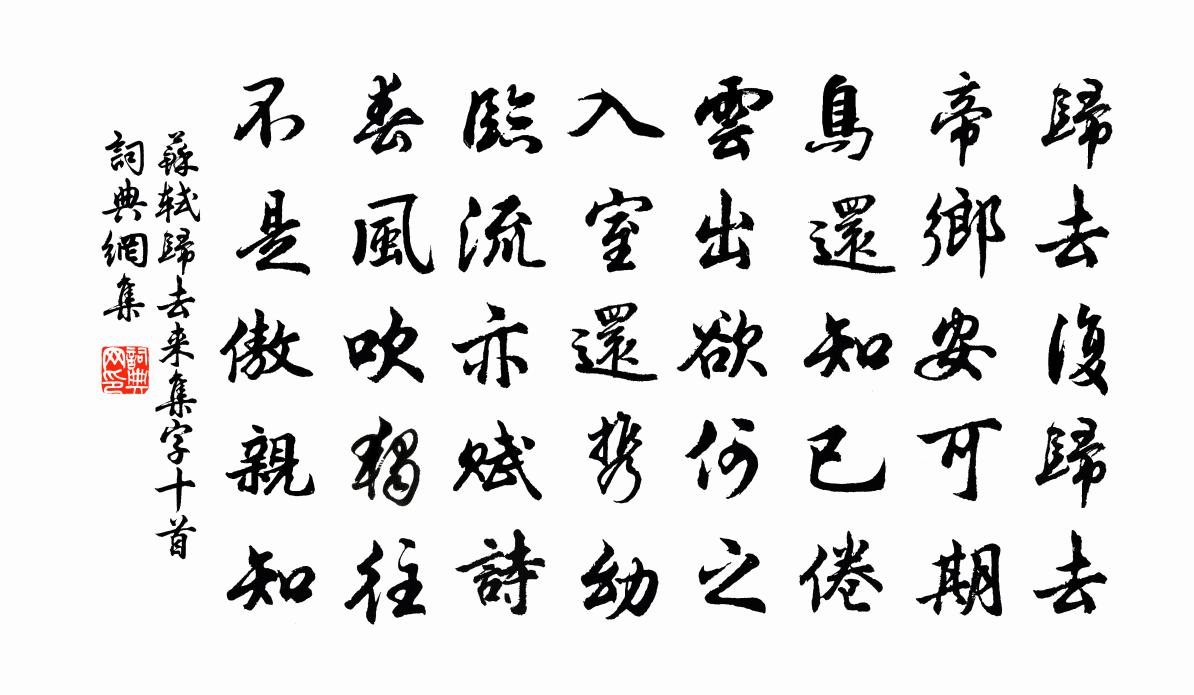 歸去復歸去
帝鄉安可期
鳥還知已倦
雲出欲何之
入室還携幼
臨流亦賦詩
春風吹獨往
不是傲親知
蘇軾歸去来集字十首
詞典網集
詞典网印